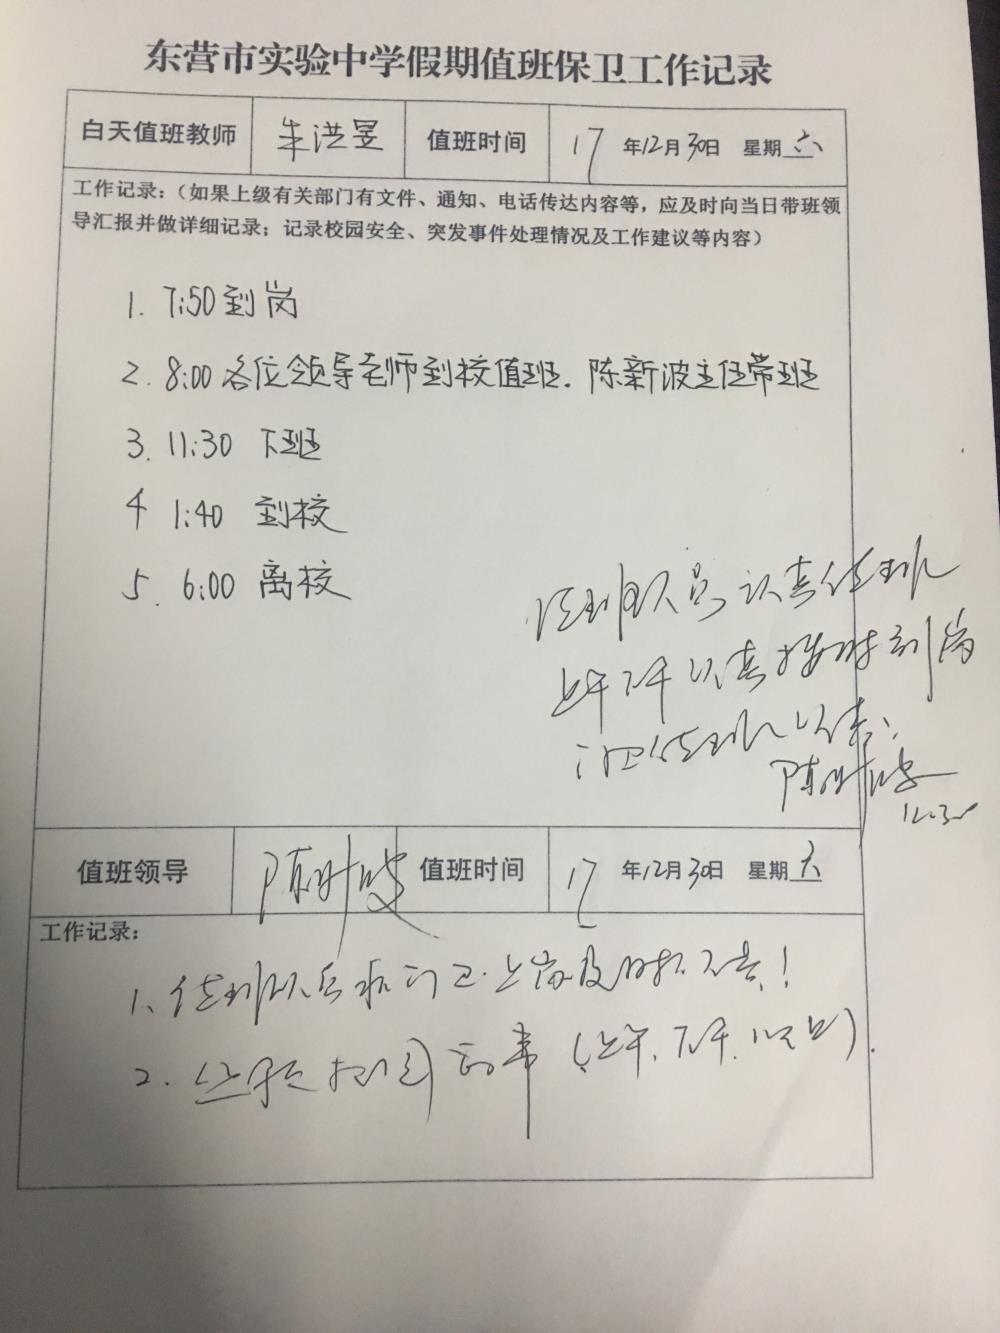 东营市实验中学假期值班保卫工作记录
白天值班教师 朱洪昱 值班时间 17年12月30日 星期六
工作记录：（如果上级有关部门有文件、通知、电话传达内容等，应及时向当日带班领
导汇报并做详细记录；记录校园安全、突发事件处理情况及工作建议等内容）
1. 7:50到岗
2. 8:00各位领导老师到校值班. 陈新波主任带班
3. 11:30 下班
4 1:40 到校
5. 6:00 离校
值班人员认真值班
上午下午认真按时到岗
值班认真
陈新波
12.30
值班领导 陈新波 值班时间 17年12月30日 星期六
工作记录：
1、值班人员和门卫上岗及时
2. 正常(上午、下午、晚上).